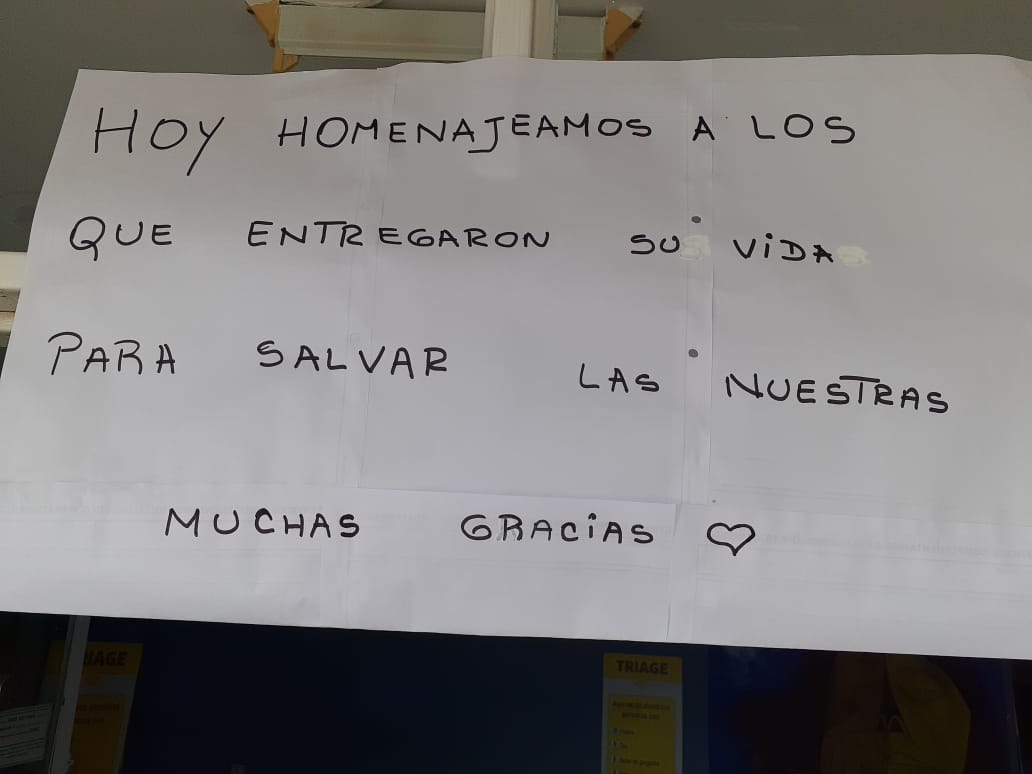 HOY HOMENAJEAMOS A LOS
QUE ENTREGARON SU VIDA
PARA SALVAR LAS NUESTRAS
MUCHAS GRACIAS ♡
TRIAGE